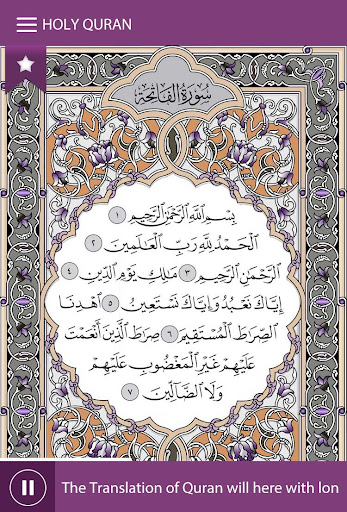 HOLY QURAN
سُورَةُ الفَاتِحَةِ
بِسْمِ ٱللَّهِ ٱلرَّحْمَٰنِ ٱلرَّحِيمِ ١
ٱلْحَمْدُ لِلَّهِ رَبِّ ٱلْعَٰلَمِينَ ٢
ٱلرَّحْمَٰنِ ٱلرَّحِيمِ ٣ مَٰلِكِ يَوْمِ ٱلدِّينِ ٤
إِيَّاكَ نَعْبُدُ وَإِيَّاكَ نَسْتَعِينُ ٥ ٱهْدِنَا
ٱلصِّرَٰطَ ٱلْمُسْتَقِيمَ ٦ صِرَٰطَ ٱلَّذِينَ أَنْعَمْتَ
عَلَيْهِمْ غَيْرِ ٱلْمَغْضُوبِ عَلَيْهِمْ
وَلَا ٱلضَّآلِّينَ ٧
The Translation of Quran will here with lon